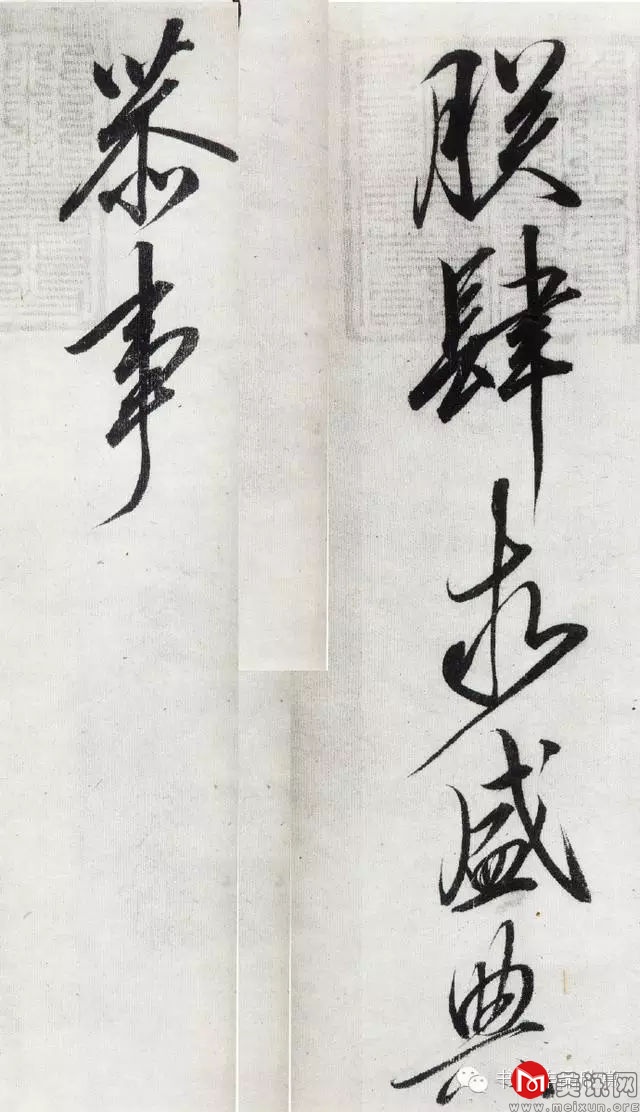 朕肆求盛典
恭事
美讯网
www.meixun.org